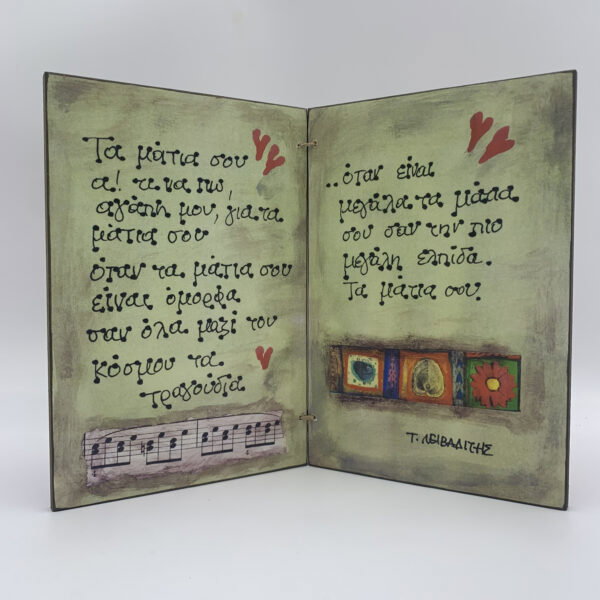 Τα μάτια σου
α! τι να πω,
αγάπη μου, για τα
μάτια σου
όταν τα μάτια σου
είναι όμορφα
σαν όλα μαζί του
κόσμου τα
τραγούδια
..όταν είναι
μεγάλα τα μάτια
σου σαν την πιο
μεγάλη ελπίδα.
Τα μάτια σου.
Τ. ΛΕΙΒΑΔΙΤΗΣ